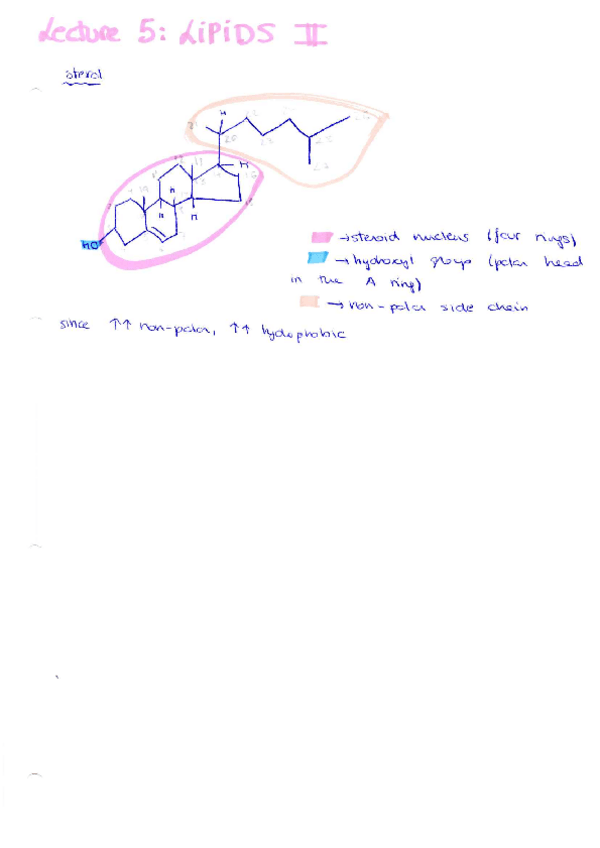 Lecture 5: LiPiDS II
sterol
H
21
22
20
23
25
26
27
12
11
H
16
19
H
H
H
HO
→ steroid nucleus (four rings)
→ hydroxyl group (polar head
in the A ring)
→ non-polar side chain
since ↑↑ non-polar, ↑↑ hydrophobic